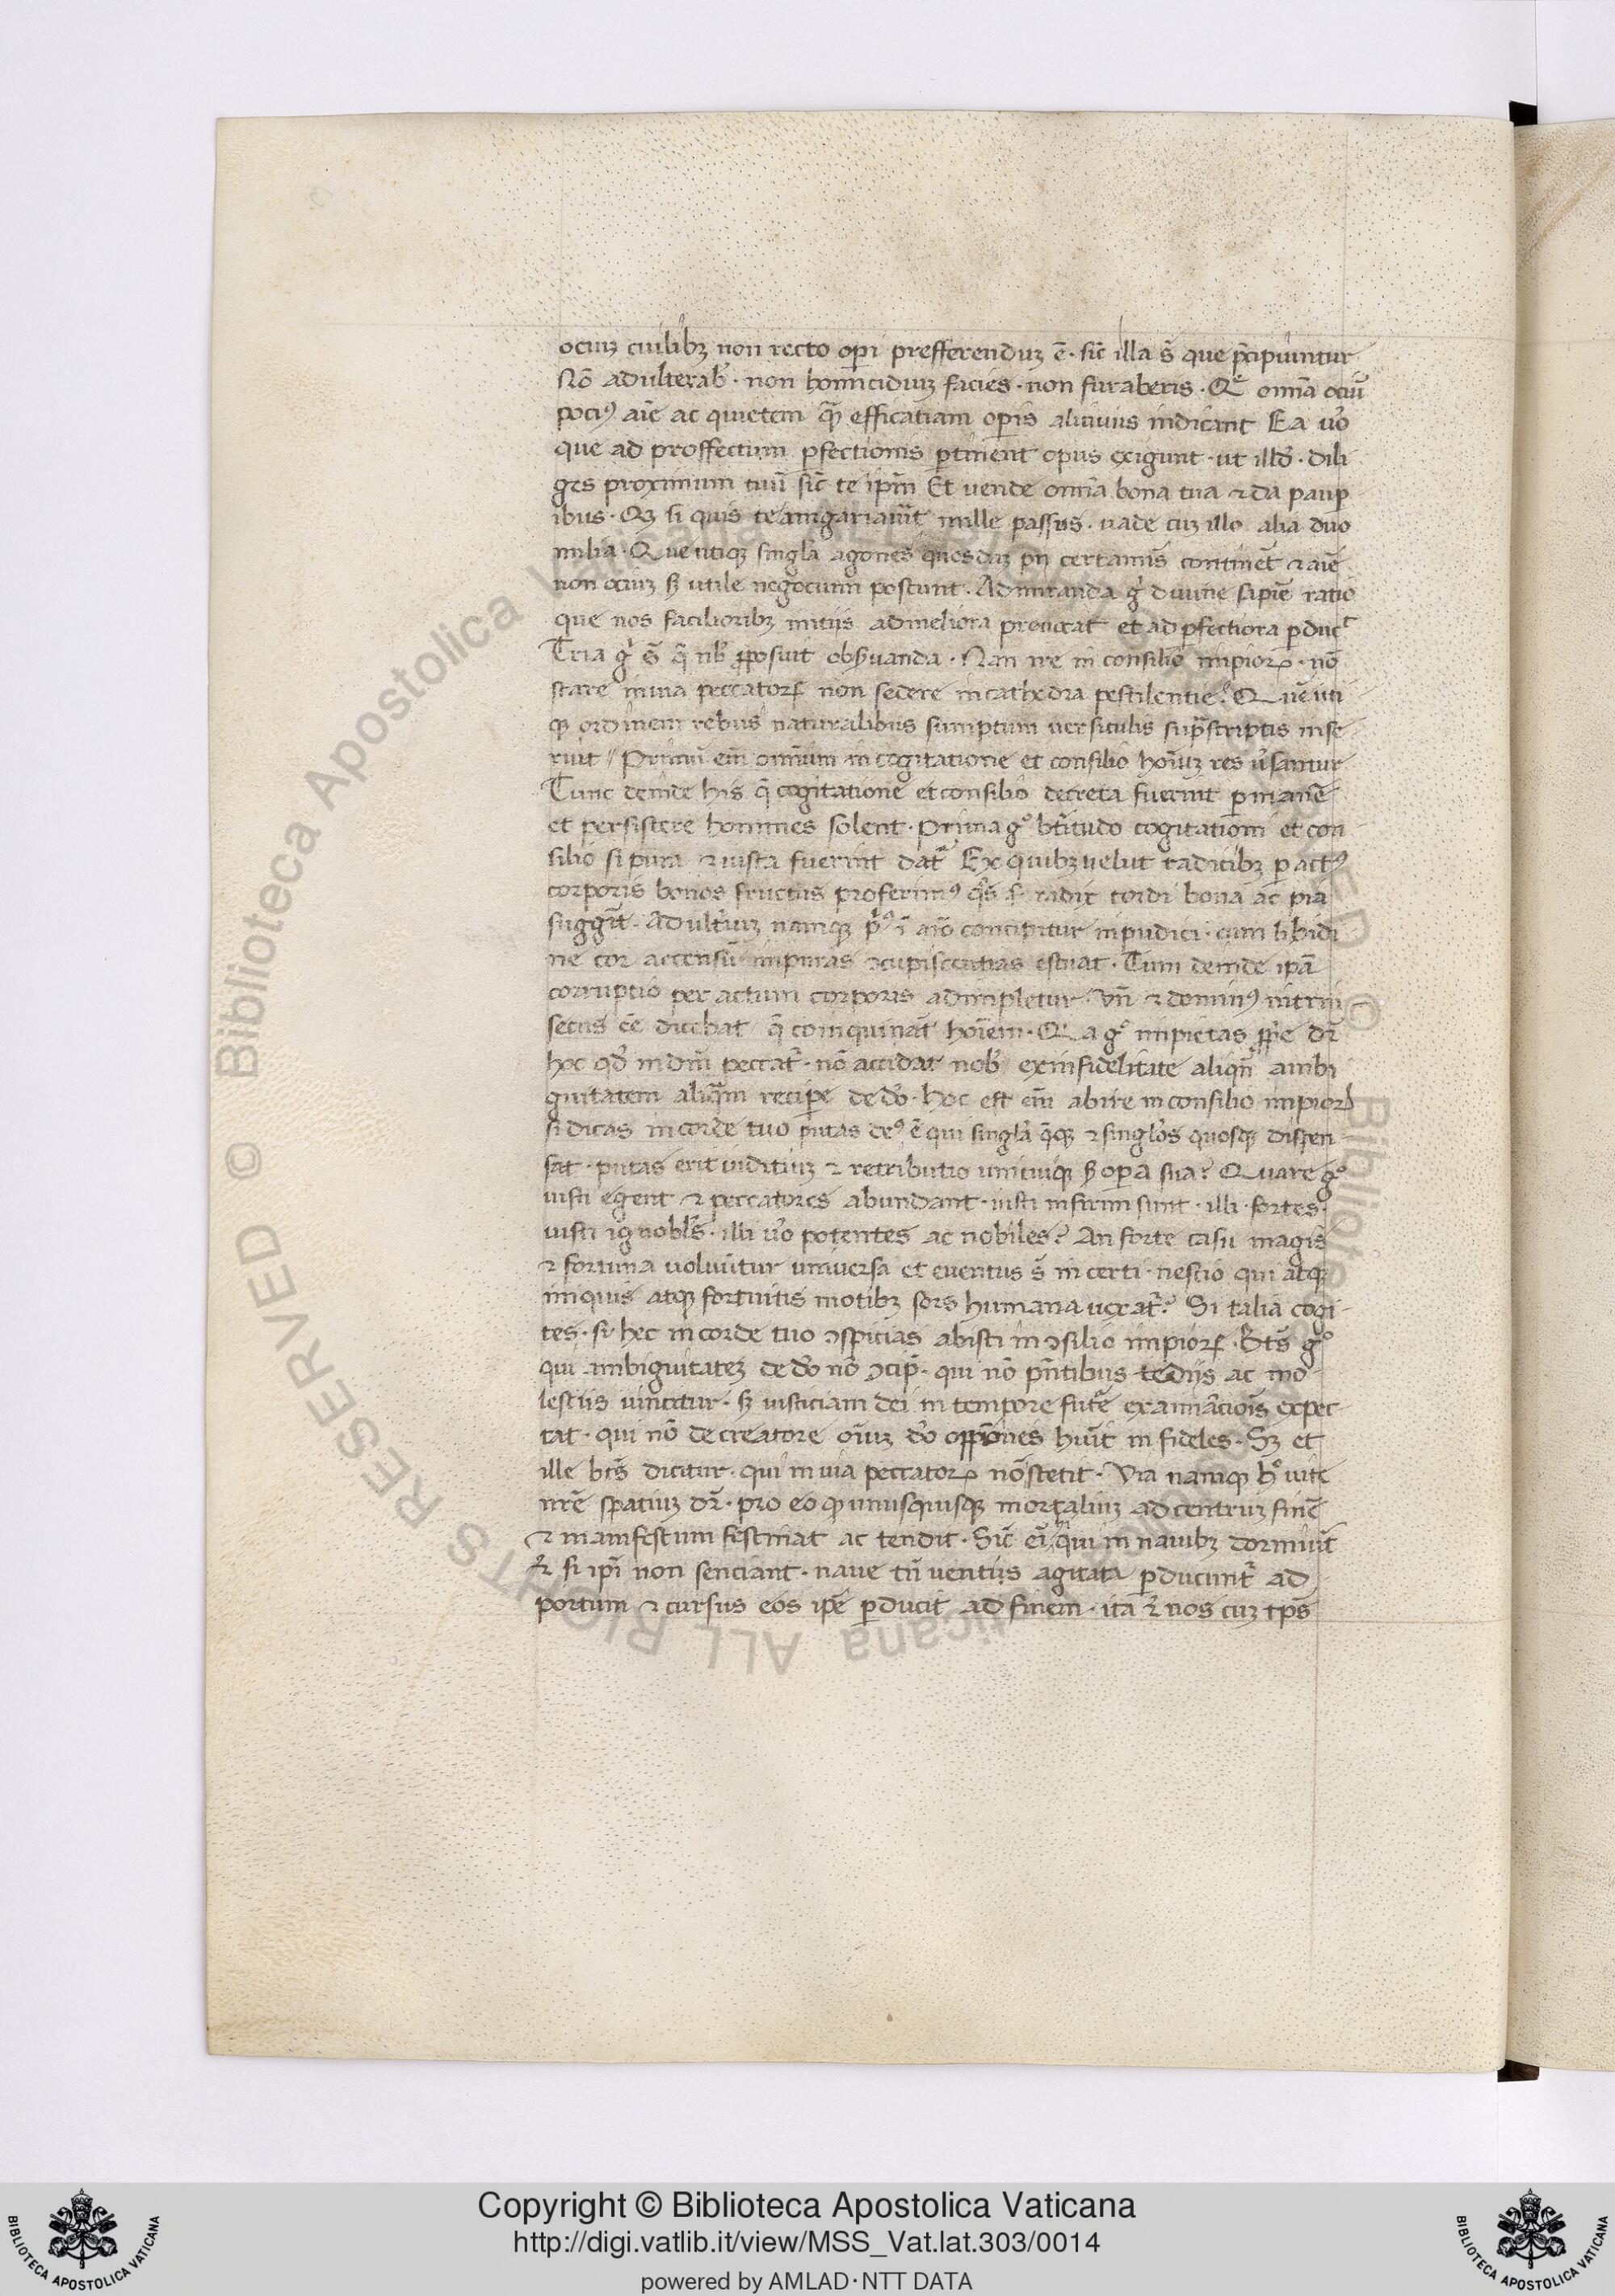 ociuʒ cuilibʒ non recto opi prefferenduʒ ē · sic̄ illa s̄ que p̄cipiuntur
Nō adulterab̓ · non homicidiuʒ facies · non furaberis · Q̄ omīa ociū
poci᷒ aīe ac quietem qᷓ efficatiam opis alicuius indicant Ea u̓o
que ad proffectum ꝑfectionis ꝑtinent opus exigunt · ut illd̓ · dili
ges proximum tuū sic̄ te ip̄m Et uende omīa bona tua ⁊ da paup
ibus · Qʒ si quis te angariau̓it mille passus · uade cuʒ illo alia duo
milia · Que utiqʒ singl̓a agones quosdaʒ certamīs continēt ⁊ aīe
non ociuʒ sʒ utile negocium poscunt · Admiranda g̓ diuine sapiē ratio
que nos facilioribʒ initiis ad meliora prouocat et ad ꝑfectiora ꝑduc̄
Tria g̓ s̄ q̄ nb̓ ꝓposuit obs̓uanda · Nan ire in consilio impioꝝ · nō
stare in uia peccatoꝝ non sedere in cathedra pestilentie · Que uti
qʒ ordinem rebus naturalibus sumptum uersiculis supᷓscriptis inse
ruit // Primū eīm omnium in cogitatione et consilio hoīuʒ res u̓santur
Tunc deinde his q̄ cogitatione et consilio decreta fuerint ꝑmanē
et persistere homines solent · Prima gº bt̄itudo cogitationi et con
silio si pura ⁊ iusta fuerint dat᷑ Ex quibʒ uelut radicibʒ ꝑ act᷒
corporis bonos fructus proferim᷒ radix cordi bona ac pia
sugḡit · Adult̓iuʒ namqʒ p̓᷒ ī aīo concipitur inpudici · cum libidi
ne cor accensū impuras ꝯcupiscentias estuat · Tum deinde ip̄a
corruptio per actum corporis adimpletur · Vn̄ ⁊ domin᷒ intrin
secus ēe dicebat q̄ coinquinat̄ hoīem · Q a gº impietas ꝓp̓e dr̄
hoc qd̓ in dm̄ peccat᷑ · nō accidat nob̓ ex infidelitate aliqn̄ ambi
guitatem aliqᷓm recipe de dō · hoc est eīm abire in consilio impioꝝ
si dicas in corde tuo putas de᷒ ē qui singl̓a q̄qʒ ⁊ singl̓os quosqʒ dispen
sat · putas erit iuditiuʒ ⁊ retributio unicuiqʒ s̓ opera sua? Quare gº
iusti egent ⁊ peccatores abundant · iusti infirmi sunt · illi fortes ·
iusti ignobl̓s · illi u̓o potentes ac nobiles? An forte casu magis
⁊ fortuna uoluūtur uniuersa et euentus s̄ incerti · nescio qui atqʒ
iniquis atqʒ fortuitis motibʒ sors humana uexat᷑? Si talia cogi
tes · si hec in corde tuo ꝯspicias abisti in ꝯsilio impioꝝ · Bt̄s gº
qui ambiguitateʒ de dō nō ꝯcip̄ · qui nō pn̄tibus tediis ac mo
lestiis uincitur · sʒ iusticiam dei in tempore futē examinac̄iois expec
tat · qui nō de creatore oīuʒ dō oppiōnes hūit in fideles · Sʒ et
ille bt̄s dicitur · qui in uia peccatoꝝ nō stetit · Via namqʒ hº uite
nr̄e spatiuʒ dr̄ · pro eo qʒ unusquisqʒ mortaliuʒ ad centruʒ finē
⁊ manifestum festinat ac tendit · Sic̄ eī qui in nauibʒ dormiūt
⁊ si ip̄i non senciant · naue tn̄ uentiis agitata ꝑducunt᷑ ad
portum ⁊ cursus eos ip̄e ꝑducit ad finem · ita ⁊ nos cuʒ tp̄s
© Biblioteca Apostolica Vaticana ALL RIGHTS RESERVED
Copyright © Biblioteca Apostolica Vaticana
http://digi.vatlib.it/view/MSS_Vat.lat.303/0014
powered by AMLAD · NTT DATA
BIBLIOTECA APOSTOLICA VATICANA
BIBLIOTECA APOSTOLICA VATICANA